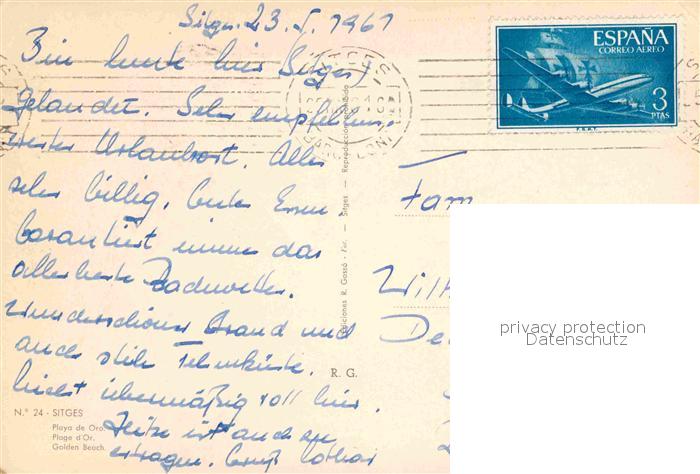 Sitges 23.5.1961
Bin heute hier (Sitges)
Gelandet. Sehr empfehlens-
werter Urlaubsort. Alles
sehr billig, gutes Essen,
Garantiert immer das
allerbeste Badewetter.
Wunderschöner Strand und
auch steile Felsenküste.
Nicht übermäßig voll hier.
Hitze ist auch zu
ertragen. Gruß Lothar
ESPAÑA
CORREO AEREO
3
PTAS
F.N.M.T.
SITGES
Fam
Wilh
De
privacy protection
Datenschutz
Ediciones R. Gassó - Sitges - Reproducción prohibida
R. G.
N.º 24 - SITGES
Playa de Oro.
Plage d'Or.
Golden Beach.